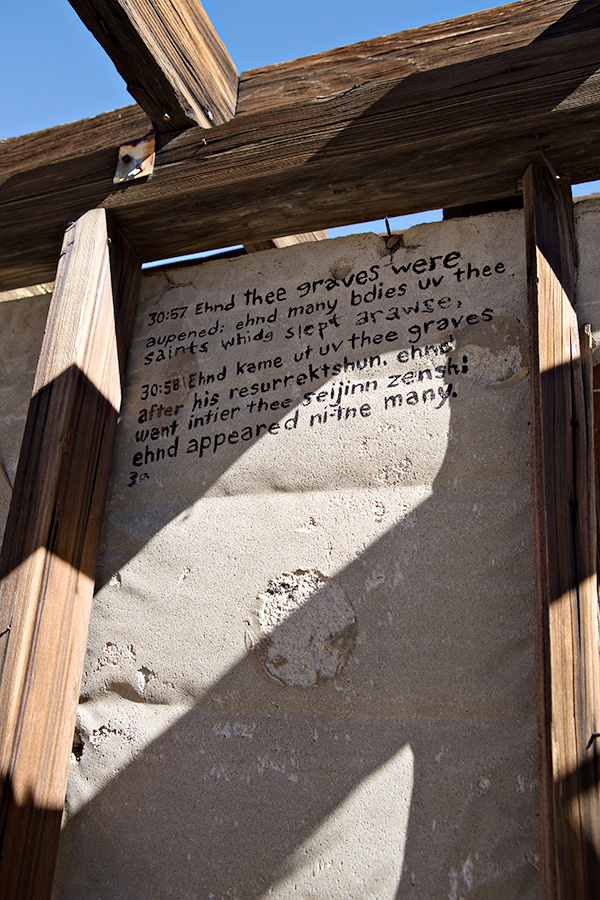 30:57 Ehnd thee graves were
aupened; ehnd many bdies uv thee
saints whidg slept arawse,
30:58 Ehnd kame ut uv thee graves
after his resurrektshun. ehnd
went intier thee seijinn zenski
ehnd appeared ni-tne many.